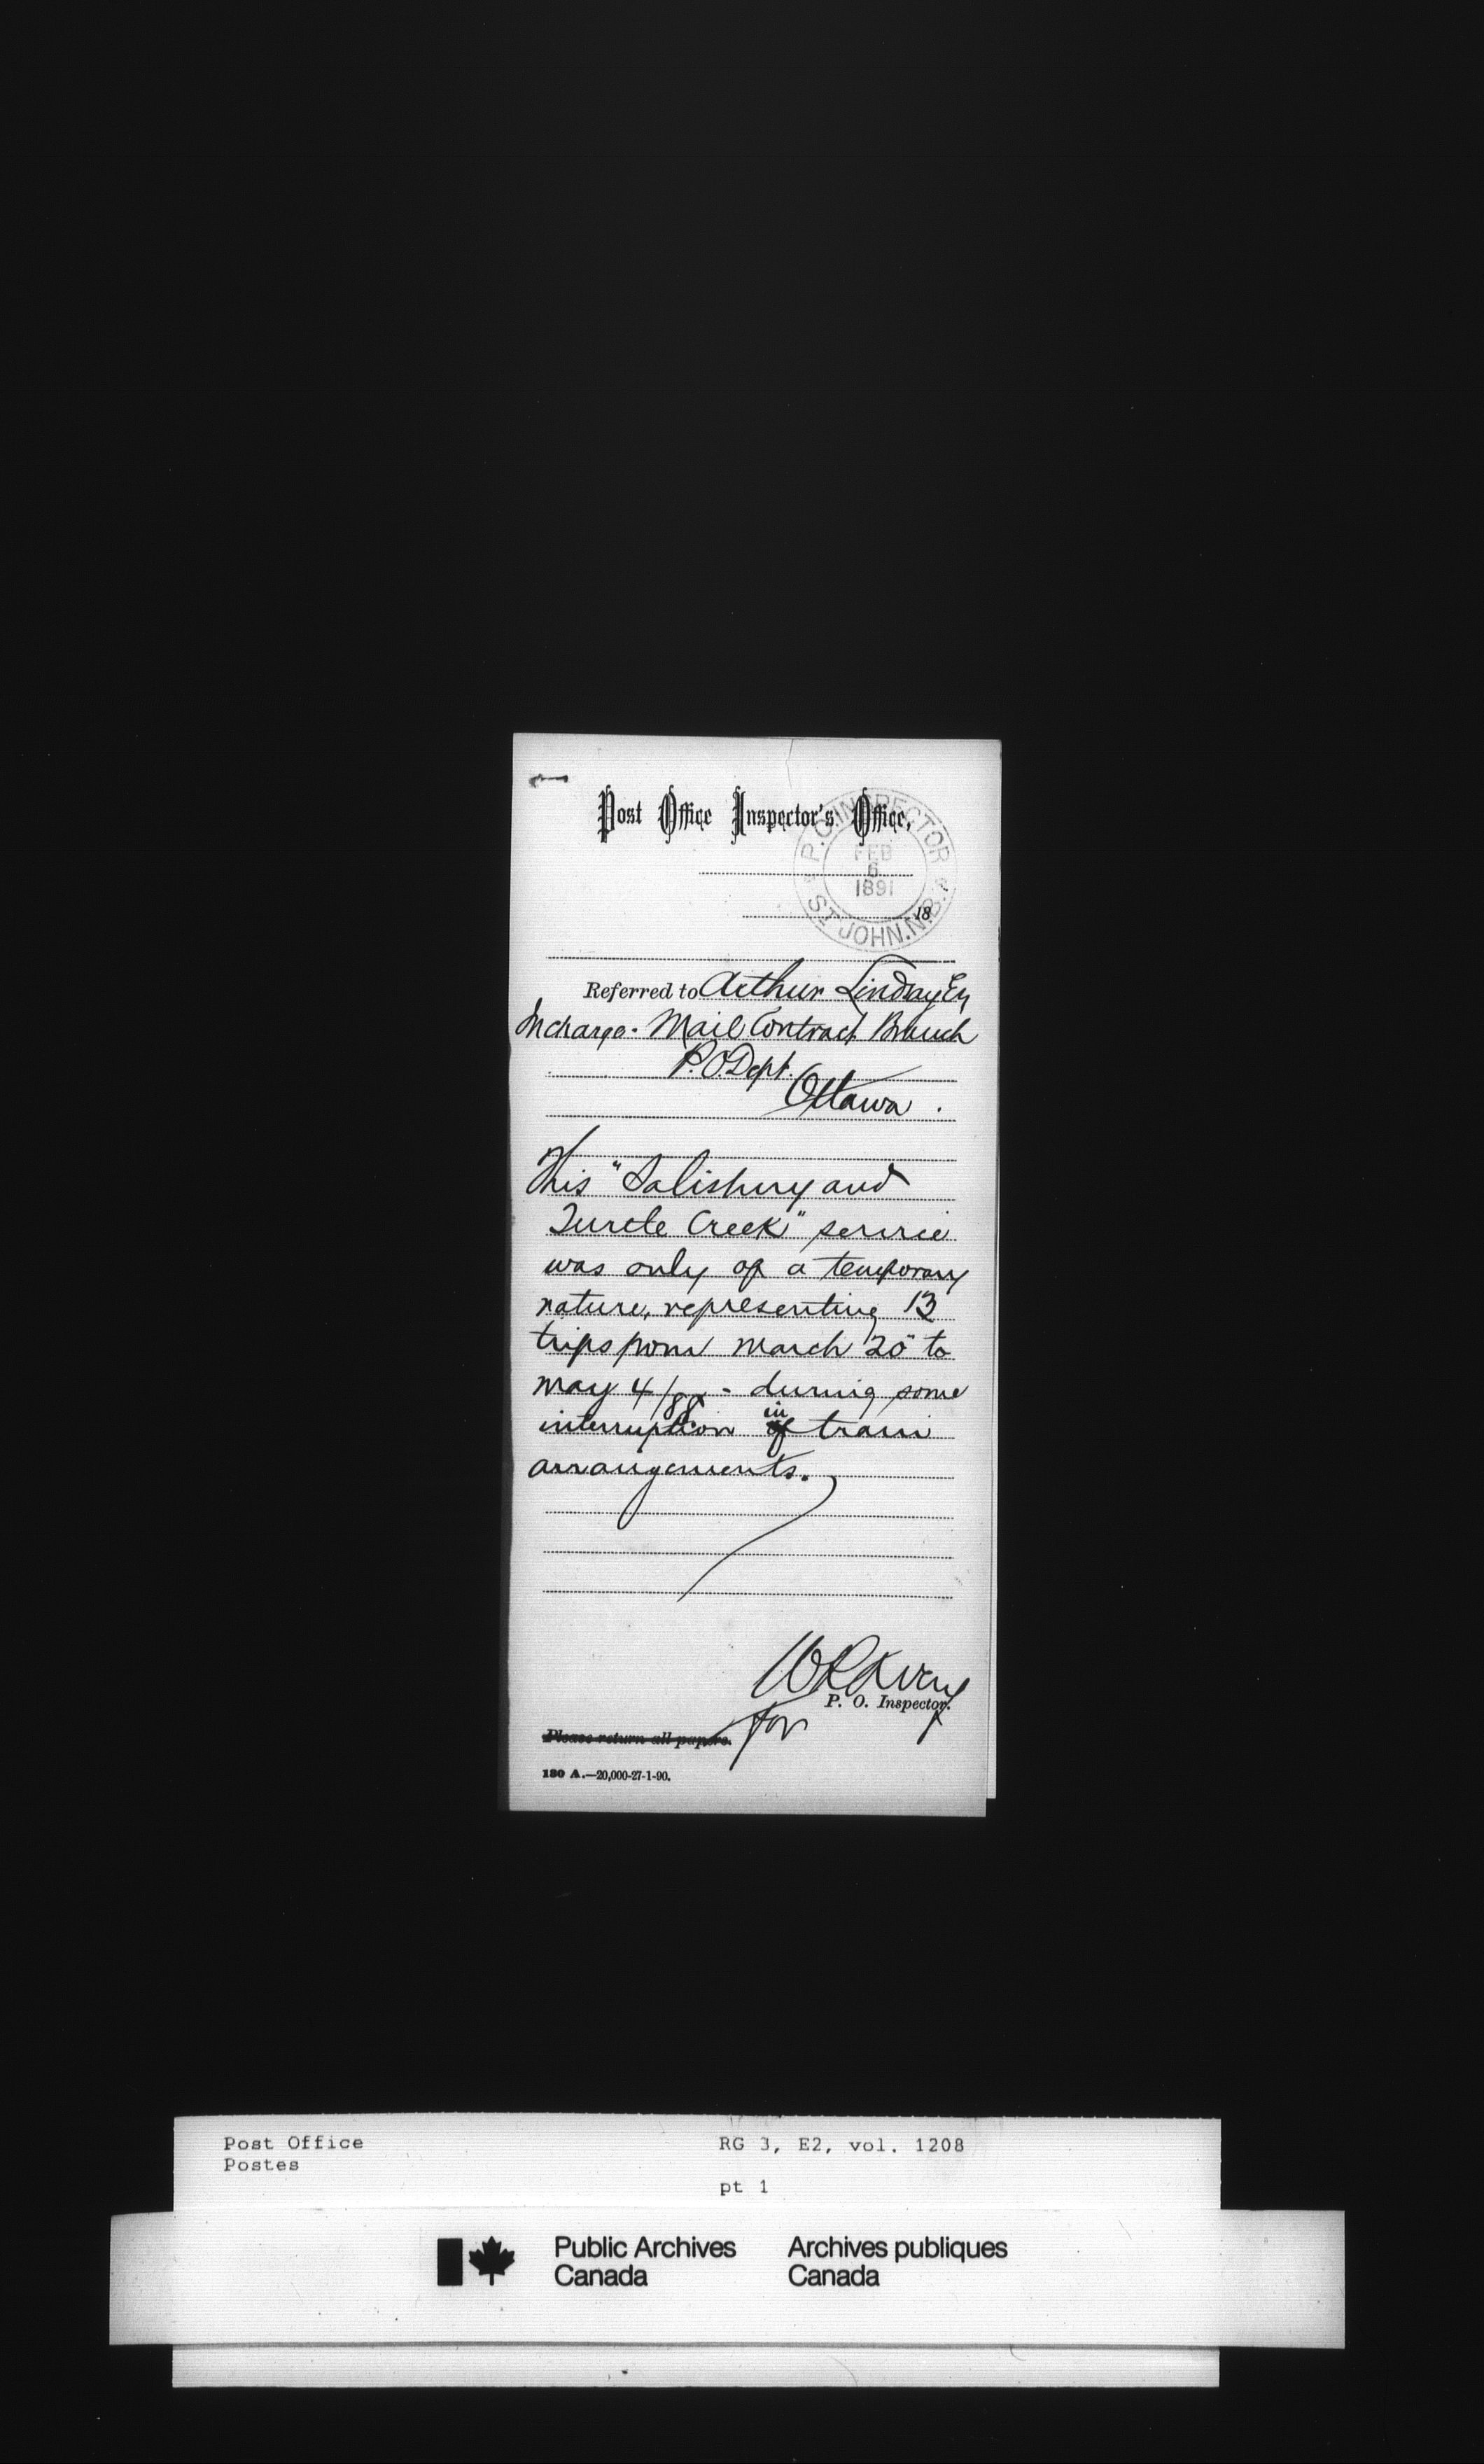 Post Office Inspector's Office,
P.O. INSPECTOR
FEB
6
1891
ST. JOHN. N.B.
18
Referred to Arthur Lindsay Esq
In charge. Mail Contract Branch
P.O. Dept.
Ottawa.
This "Salisbury and
Turtle Creek" service
was only of a temporary
nature, representing 13
trips from March 20 to
May 4/88 - during some
in
interruption of train
arrangements.
P. O. Inspector.
for
Please return all papers.
180 A.—20,000-27-1-90.
Post Office RG 3, E2, vol. 1208
Postes
pt 1
Public Archives Archives publiques
Canada Canada